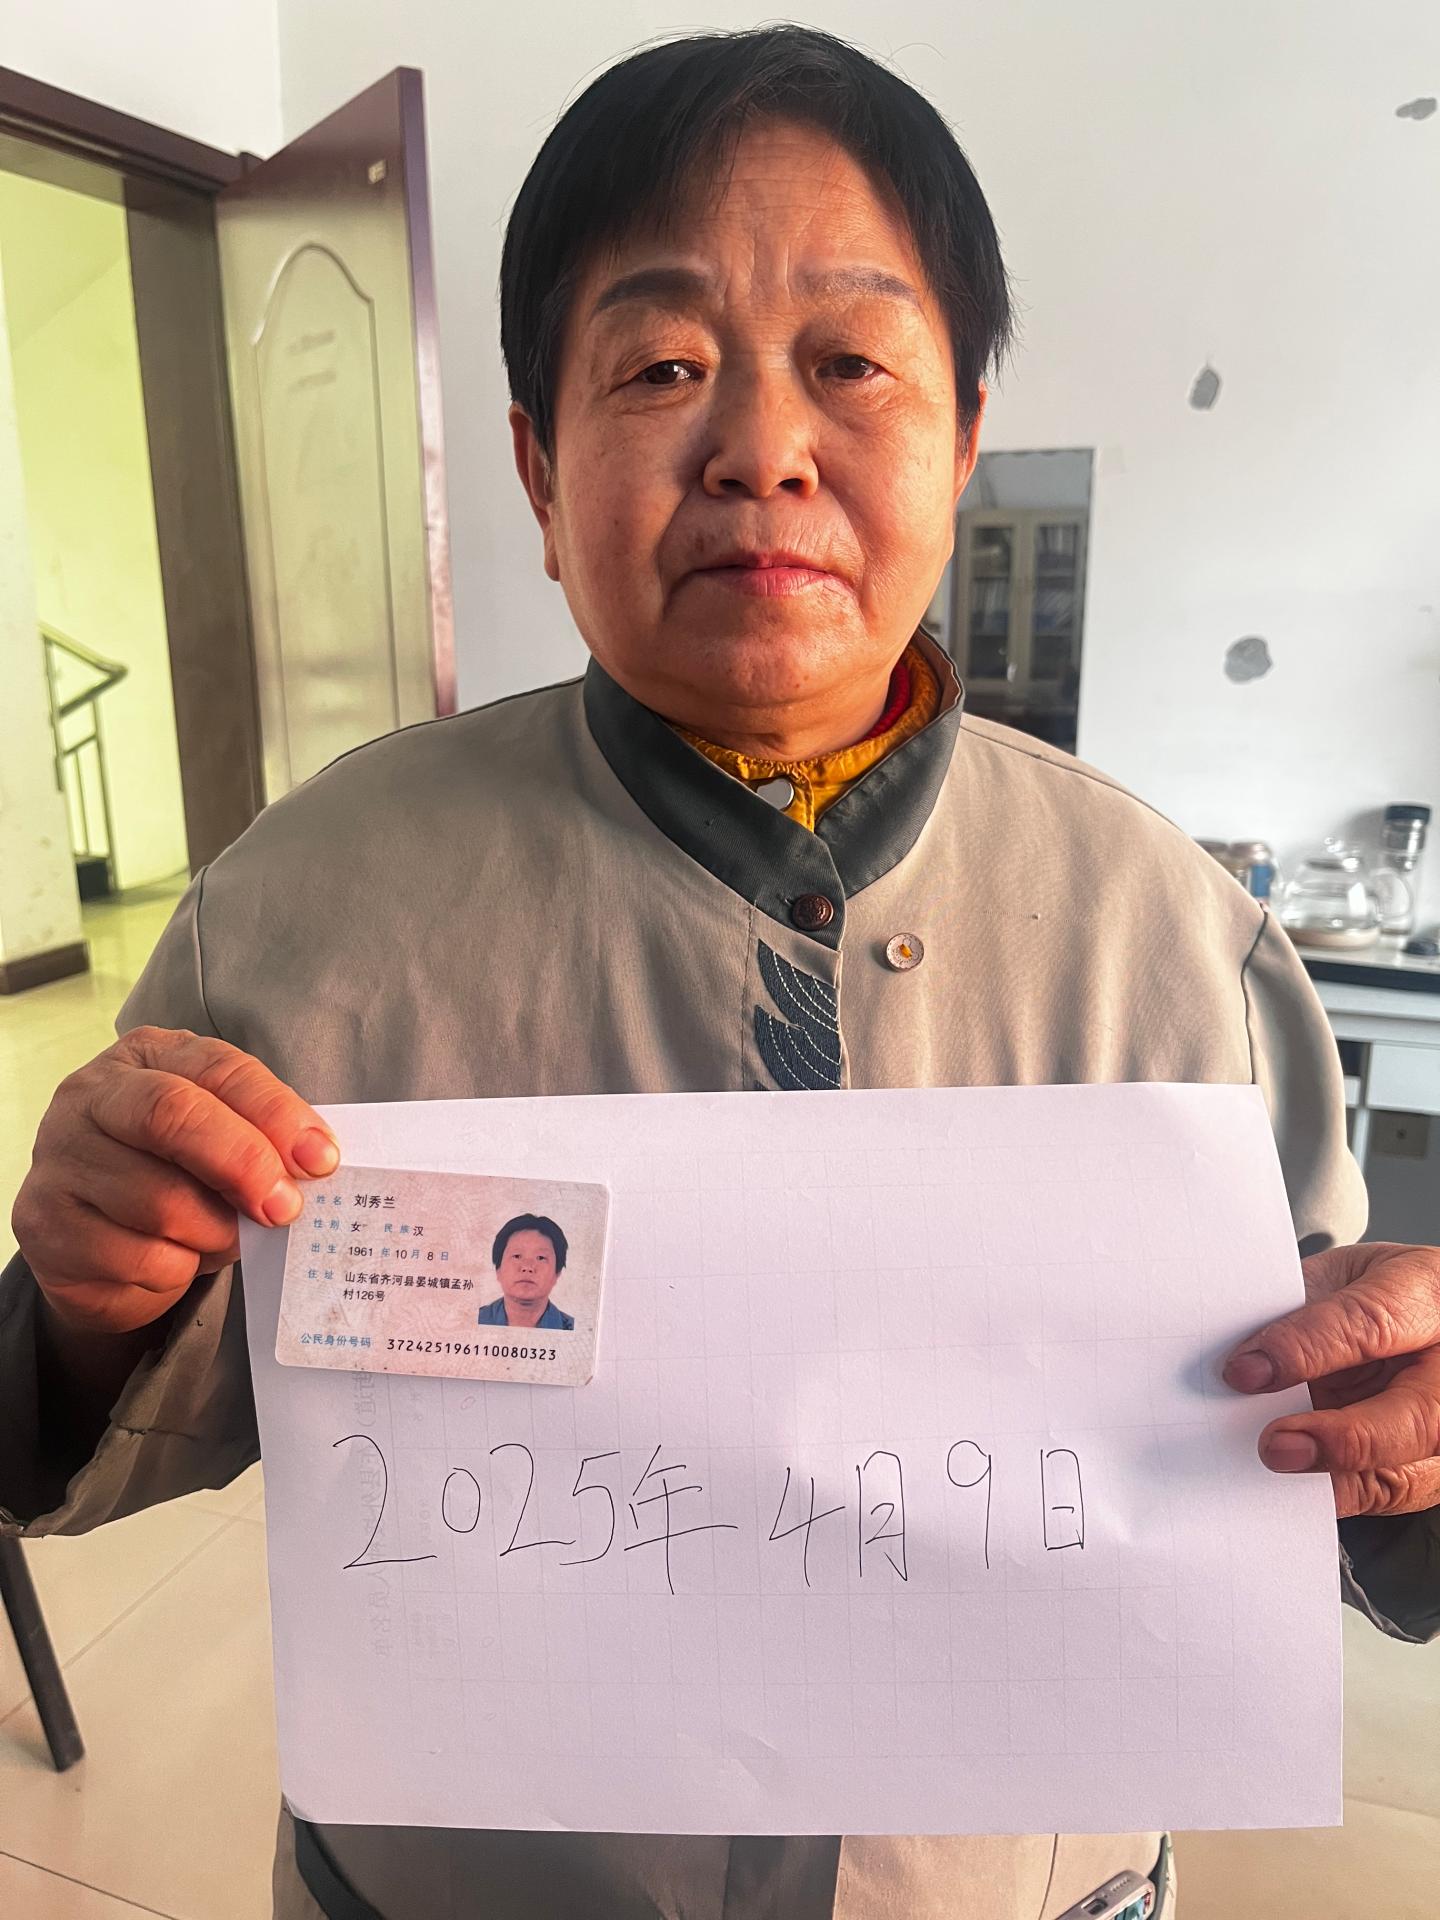 姓名 刘秀兰
性别 女 民族 汉
出生 1961 年 10 月 8 日
住址 山东省齐河县晏城镇孟孙
村126号
公民身份号码 372425196110080323
2025年4月9日